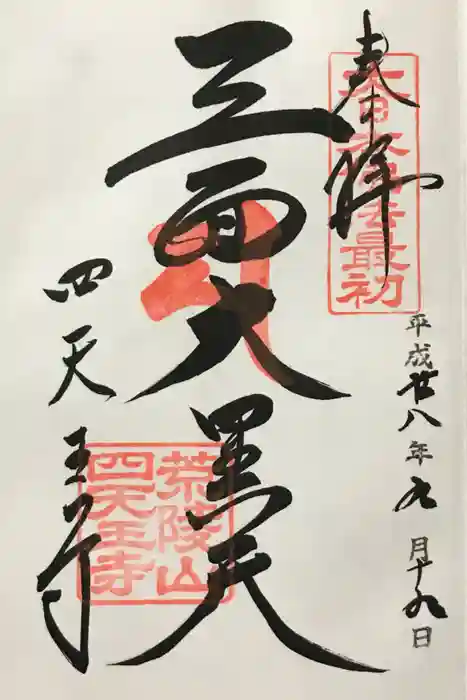 奉拝
大日本佛法最初
平成廿八年九月十九日
三面大黒天
荒陵山
四天王寺
四天王寺